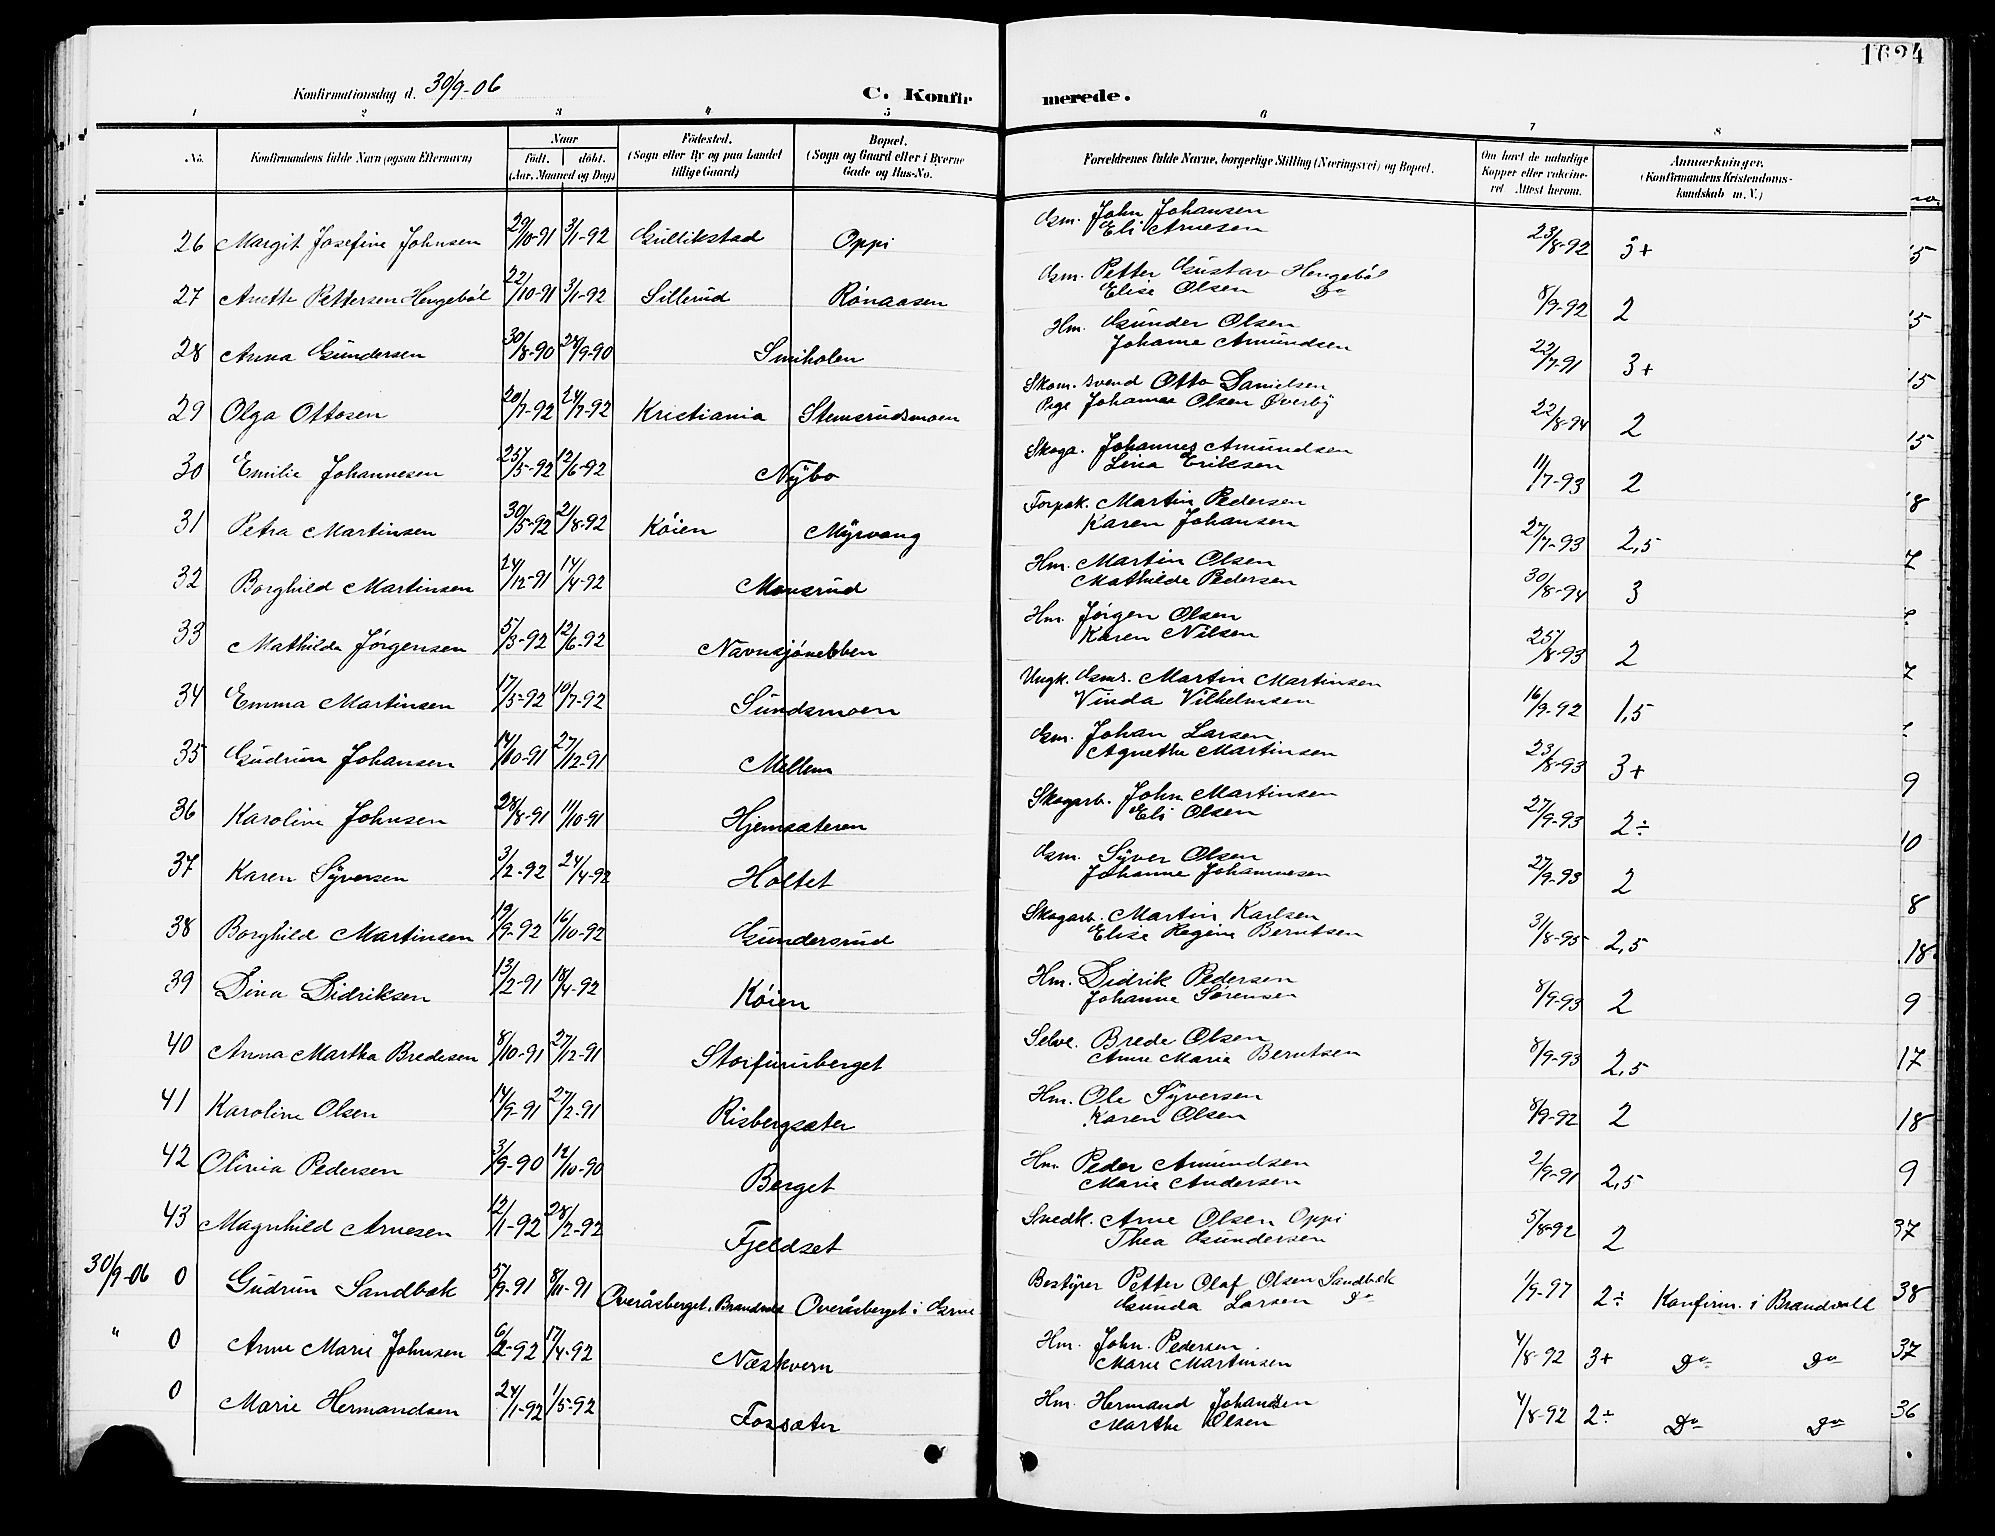 Konfirmationsdag d. 30/9-06
C. Konfirmerede.
1 2 3 4 5 6 7 8
No. Konfirmandens fulde Navn (ogsaa Efternavn) Naar født. døbt. (Aar, Maaned og Dag) Fødested. (Sogn eller By og paa Landet tillige Gaard) Bopæl. (Sogn og Gaard eller i Byerne Gade og Hus-No. Forældrenes fulde Navne, borgerlige Stilling (Næringsvei) og Bopæl. Om havt de naturlige Kopper eller vakcineret Attest herom. Anmærkninger. (Konfirmandens Kristendomskundskab m. V.)
26 Margit Josefine Johnsen 29/10-91 3/1-92 Gullikstad Oppi Gsm. John Johansen 23/8-92 3+
Eli Arnesen
27 Anette Pettersen Hengebøl 22/10-91 3/1-92 Sillerud Rønaasen Gsm. Petter Gustav Hengebøl 8/9-92 2
Elise Olsen Do
28 Anna Gundersen 30/8-90 28/9-90 Smiholen Hm. Gunder Olsen 22/7-91 3+
Johanne Amundsen
29 Olga Ottosen 20/7-92 24/7-92 Kristiania Stemsrudsmoen Skom. svend Otto Danielsen 22/8-94 2
Pige Johanne Olsen Øverby
30 Emilie Johannesen 25/5-92 12/6-92 Nÿbo Skoga. Johannes Amundsen 11/7-93 2
Lina Eriksen
31 Petra Martinsen 30/5-92 21/8-92 Køien Myrvang Forpak. Martin Pedersen 27/7-93 2,5
Karen Johansen
32 Borghild Martinsen 24/12-91 14/4-92 Monsrud Hm. Martin Olsen 30/8-94 3
Mathilde Pedersen
33 Mathilde Jørgensen 5/3-92 12/6-92 Navnsjønebben Hm. Jørgen Olsen 25/8-93 2
Karen Nilsen
34 Emma Martinsen 17/5-92 10/7-92 Sundsmoen Ungk. Gsms. Martin Martinsen 16/9-92 1,5
Vinda Vilhelmsen
35 Gudrun Johansen 14/10-91 27/12-91 Mellem Gsm. Johan Larsen 23/8-93 3+
Agnethe Martinsen
36 Karoline Johnsen 28/8-91 11/10-91 Hjemsæteren Skogarb. John Martinsen 27/9-93 2÷
Eli Olsen
37 Karen Syversen 3/2-92 24/4-92 Holtet Gsm. Syver Olsen 27/9-93 2
Johanne Johannesen
38 Borghild Martinsen 19/9-92 16/10-92 Gundersrud Skogarb. Martin Karlsen 31/8-95 2,5
Elise Regine Berntsen
39 Dina Didriksen 13/2-91 18/4-92 Køien Hm. Didrik Pedersen 8/9-93 2
Johanne Sørensen
40 Anna Martha Bredesen 8/10-91 27/12-91 Storfuruberget Selve. Brede Olsen 8/9-93 2,5
Anne Marie Berntsen
41 Karoline Olsen 14/9-91 27/2-91 Risbergsæter Hm. Ole Syversen 8/9-92 2
Karen Olsen
42 Olivia Pedersen 3/9-90 12/10-90 Berget Hm. Peder Amundsen 2/9-91 2,5
Marie Andersen
43 Magnhild Arnesen 12/1-92 28/2-92 Fjeldset Snedk. Arne Olsen Oppi 5/8-92 2
Thea Gundersen
30/9-06 0 Gudrun Sandbæk 5/9-91 8/11-91 Overåsberget, Brandval Overåsberget i Grue Bestyrer Petter Olaf Olsen Sandbæk 1/9-97 2÷ Konfirm. i Brandvall
Gunda Larsen Do
" 0 Anne Marie Johnsen 6/2-92 17/4-92 Næskvern Hm. John Pedersen 4/8-92 3+ Do Do
Marie Martinsen
0 Marie Hermandsen 24/1-92 1/5-92 Fossæter Hm. Hermand Johansen 4/8-92 2÷ Do Do
Marthe Olsen